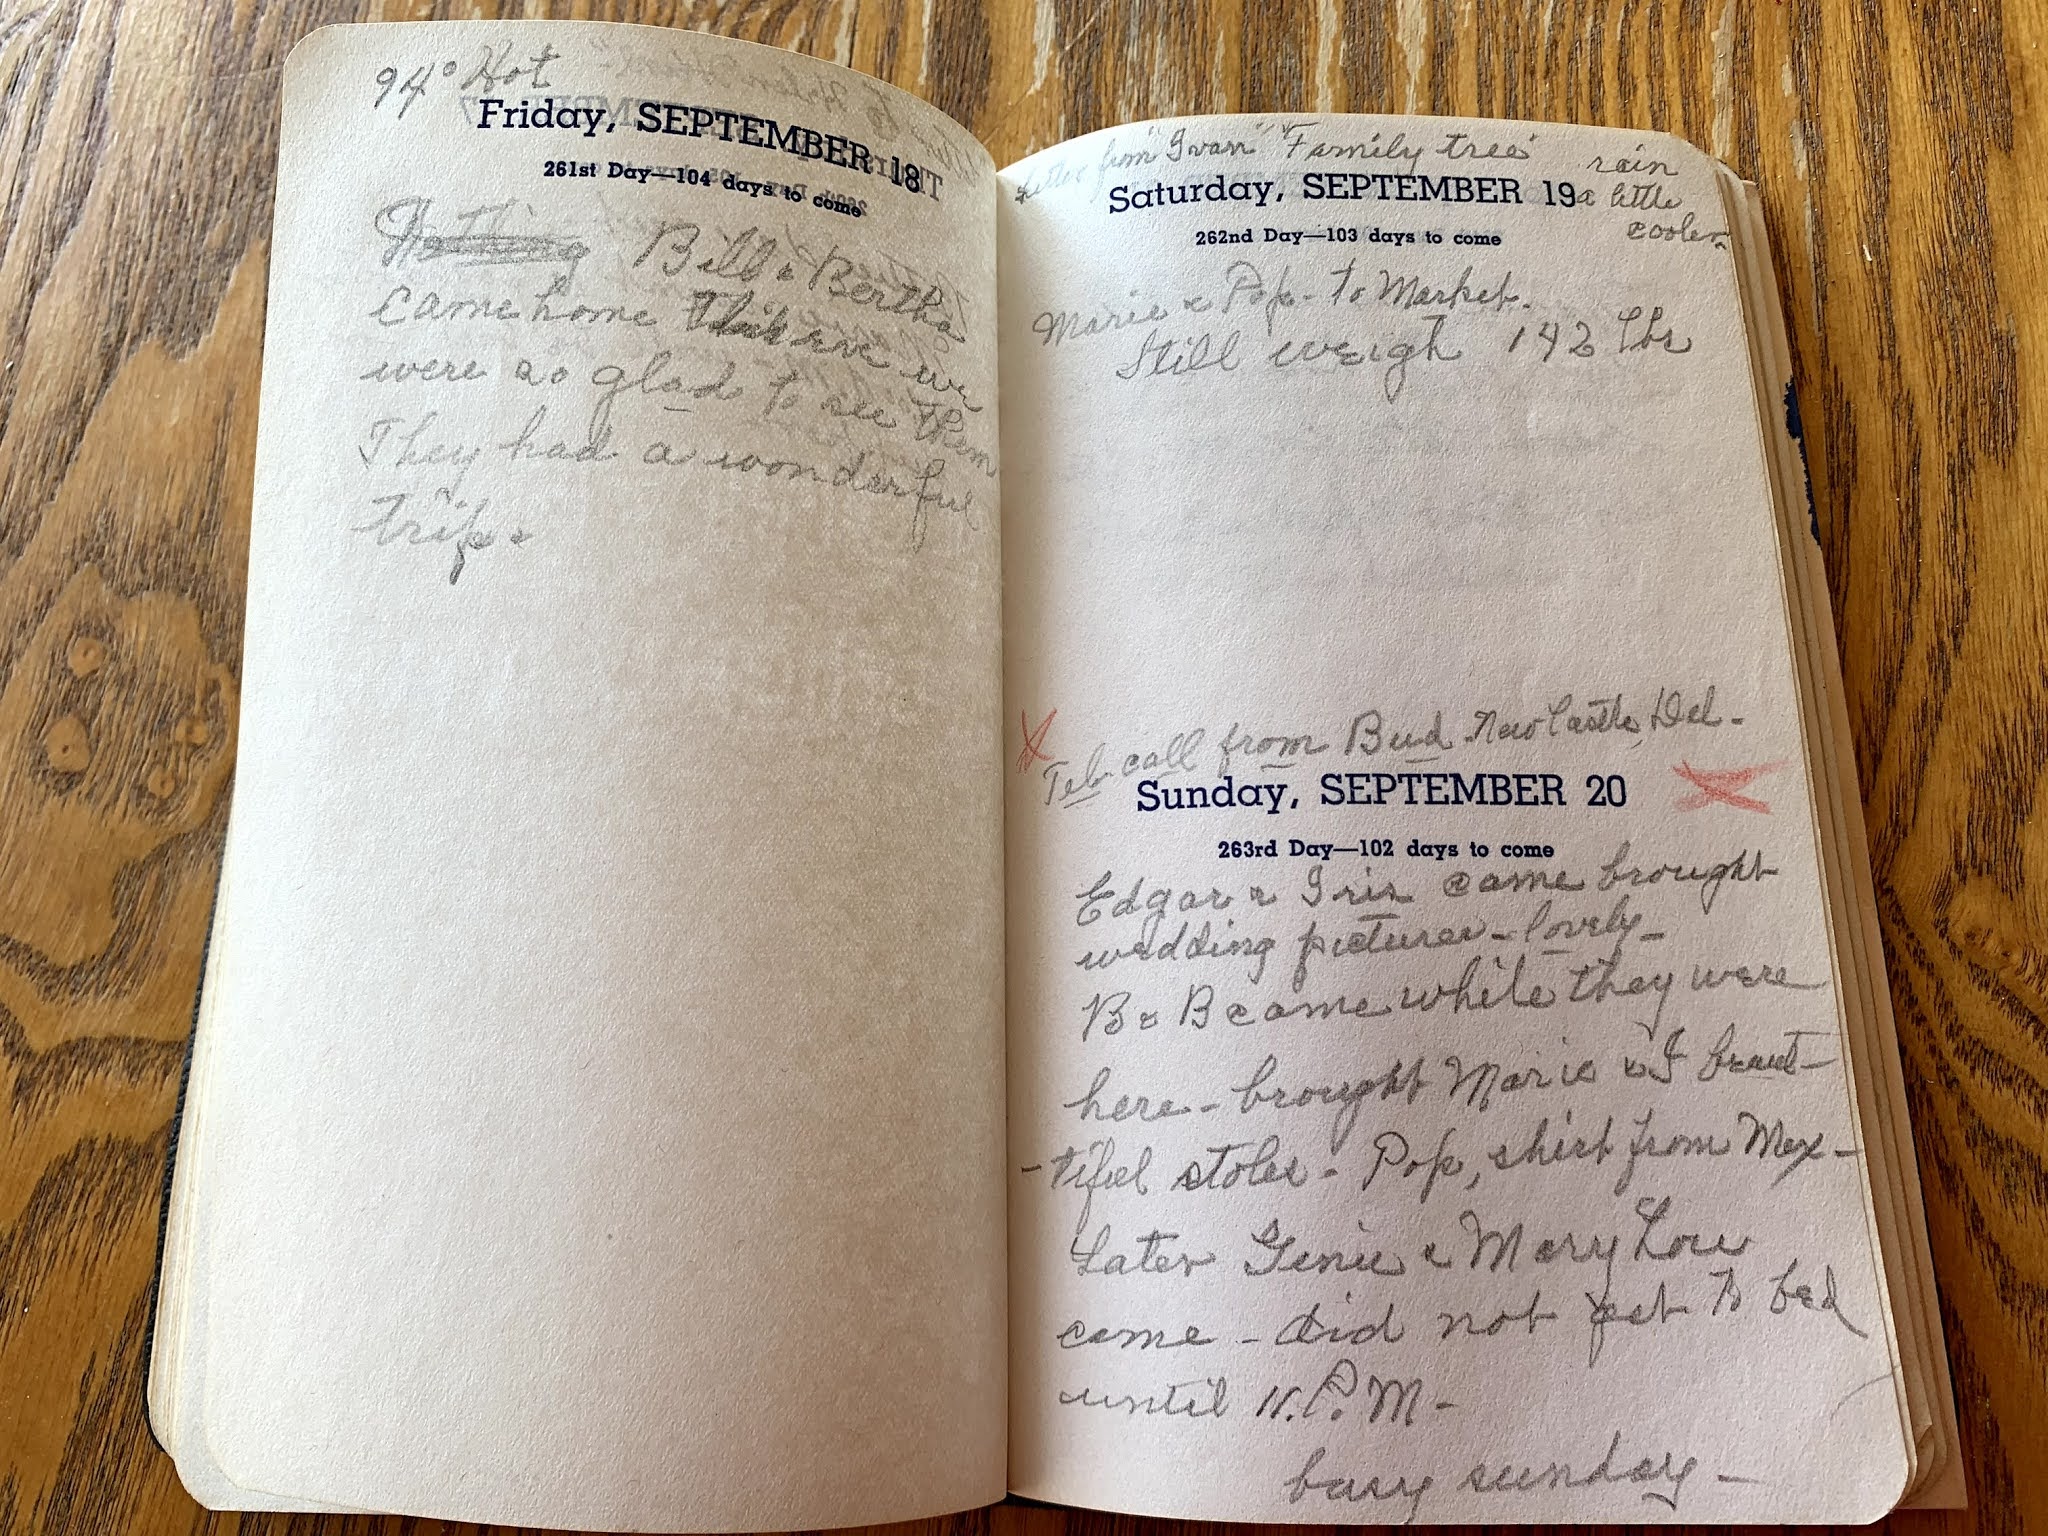 94° Hot
Friday, SEPTEMBER 18
261st Day—104 days to come
Nothing Bill & Bertha
came home This eve we
were so glad to see them
They had a wonderful
trip.
Letter from "Ivan" "Family tree" rain
Saturday, SEPTEMBER 19 a little
262nd Day—103 days to come cooler
Marie & Pop - to Market.
Still weigh 142 lbs
X Tel- call from Bud New Castle, Del-
Sunday, SEPTEMBER 20 X
263rd Day—102 days to come
Edgar & Iris came brought
wedding pictures - lovely -
B & B came while they were
here - brought Marie & I beaut-
-tiful stoles - Pop, shirt from Mex-
Later Genie & Mary Lou
came - did not get to bed
until 11. P.M -
busy sunday -